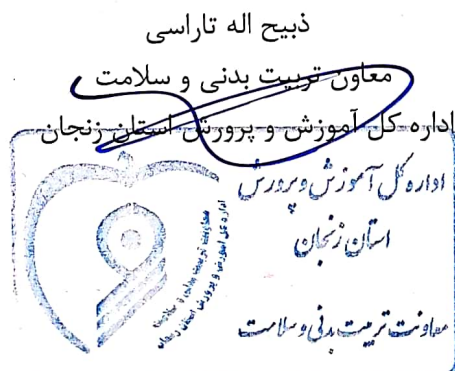 ذبیح اله تاراسی
معاون تربیت بدنی و سلامت
اداره کل آموزش و پرورش استان زنجان
اداره کل آموزش و پرورش
استان زنجان
معاونت تربیت بدنی و سلامت
معاونت تربیت بدنی و سلامت
اداره کل آموزش و پرورش استان زنجان